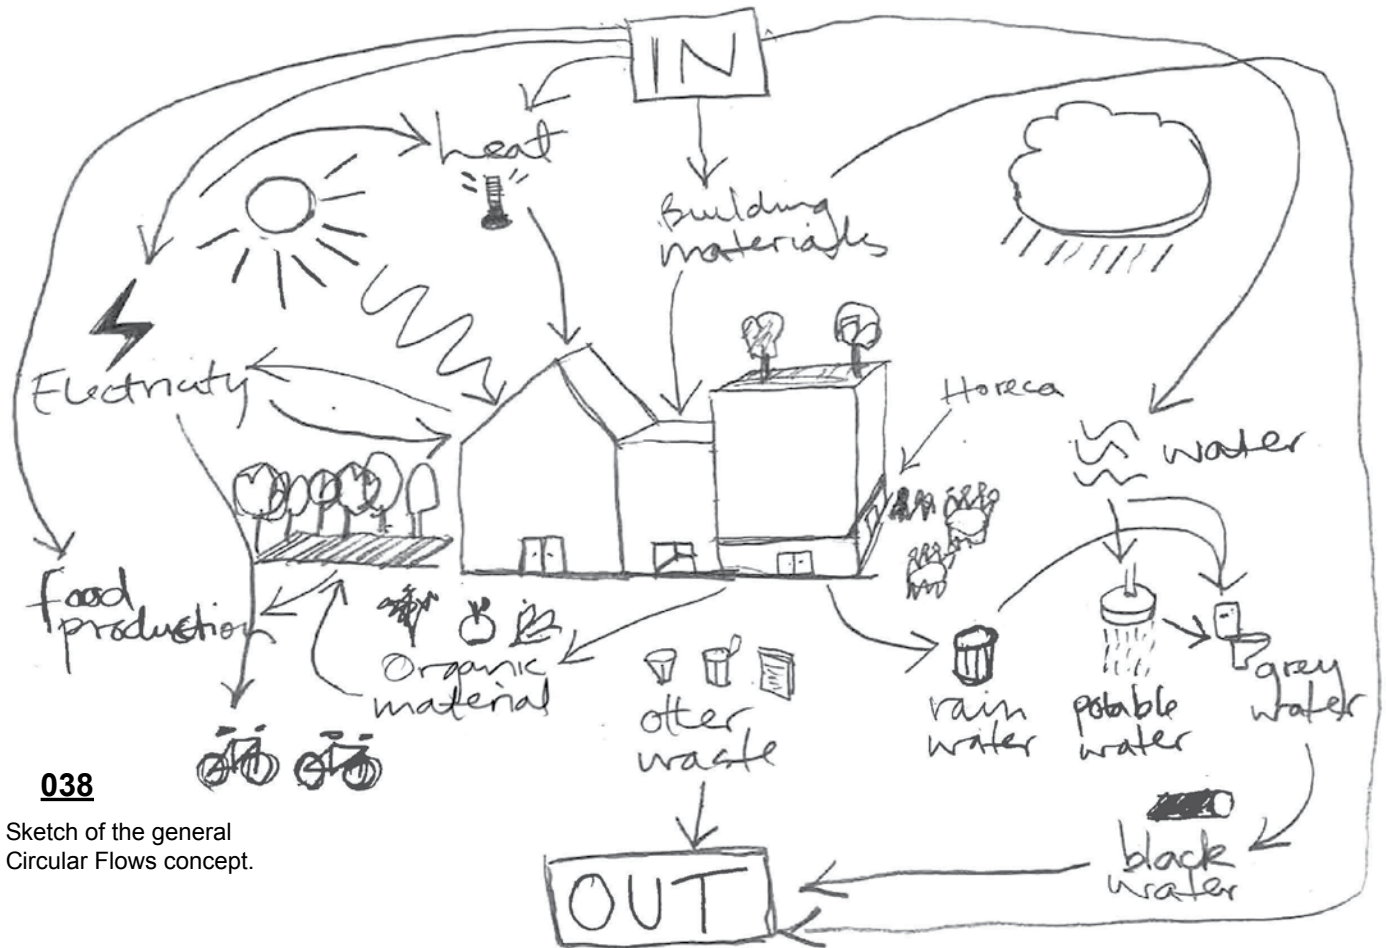 IN
heat
Building
materials
Electricity
Horeca
water
Food
production
Organic
material
other
waste
rain
water
potable
water
grey
water
black
water
OUT
038
Sketch of the general
Circular Flows concept.